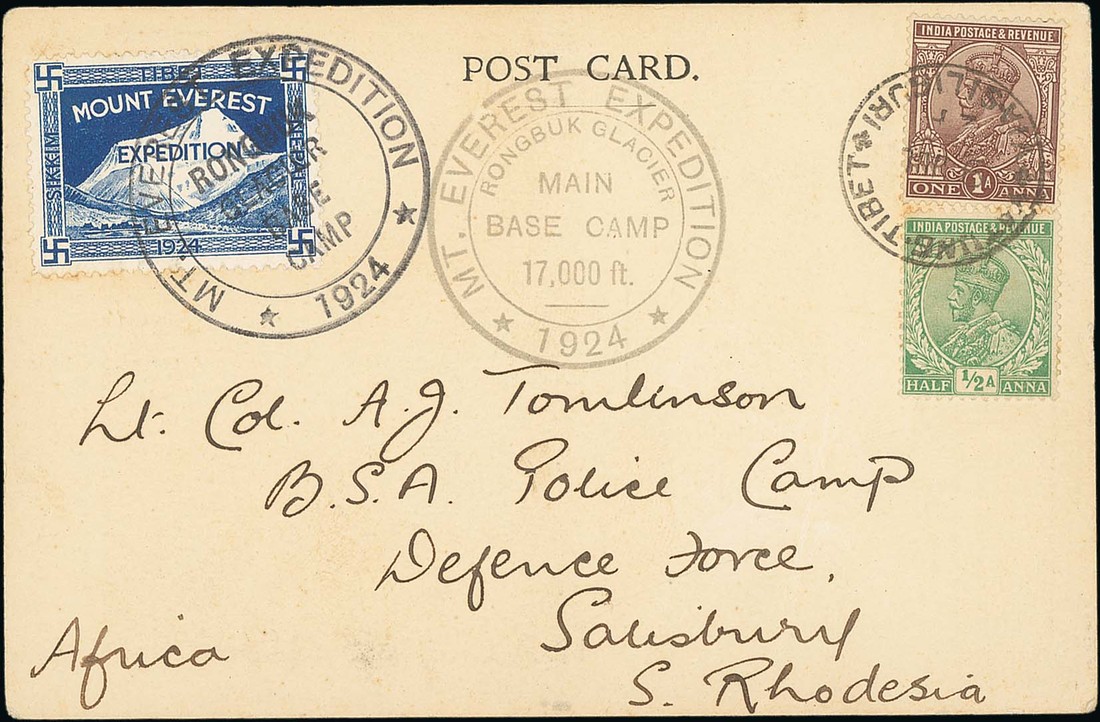 POST CARD.
TIBET
MOUNT EVEREST
EXPEDITION
SIKKIM
1924
MT. EVEREST EXPEDITION
RONGBUK
GLACIER
BASE
CAMP
1924
MT. EVEREST EXPEDITION
RONGBUK GLACIER
MAIN
BASE CAMP
17,000 ft.
1924
INDIA POSTAGE & REVENUE
ONE 1A ANNA
TIBET
INDIA POSTAGE & REVENUE
HALF 1/2A ANNA
Lt. Col. A.J. Tomlinson
B.S.A. Police Camp
Defence Force,
Salisbury
S. Rhodesia
Africa